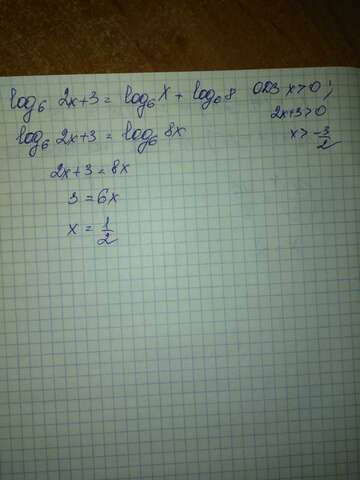 log₆ 2x+3 = log₆ x + log₆ 8 ОДЗ x>0;
2x+3>0
log₆ 2x+3 = log₆ 8x
x> -3/2
2x+3 = 8x
3 = 6x
x = 1/2